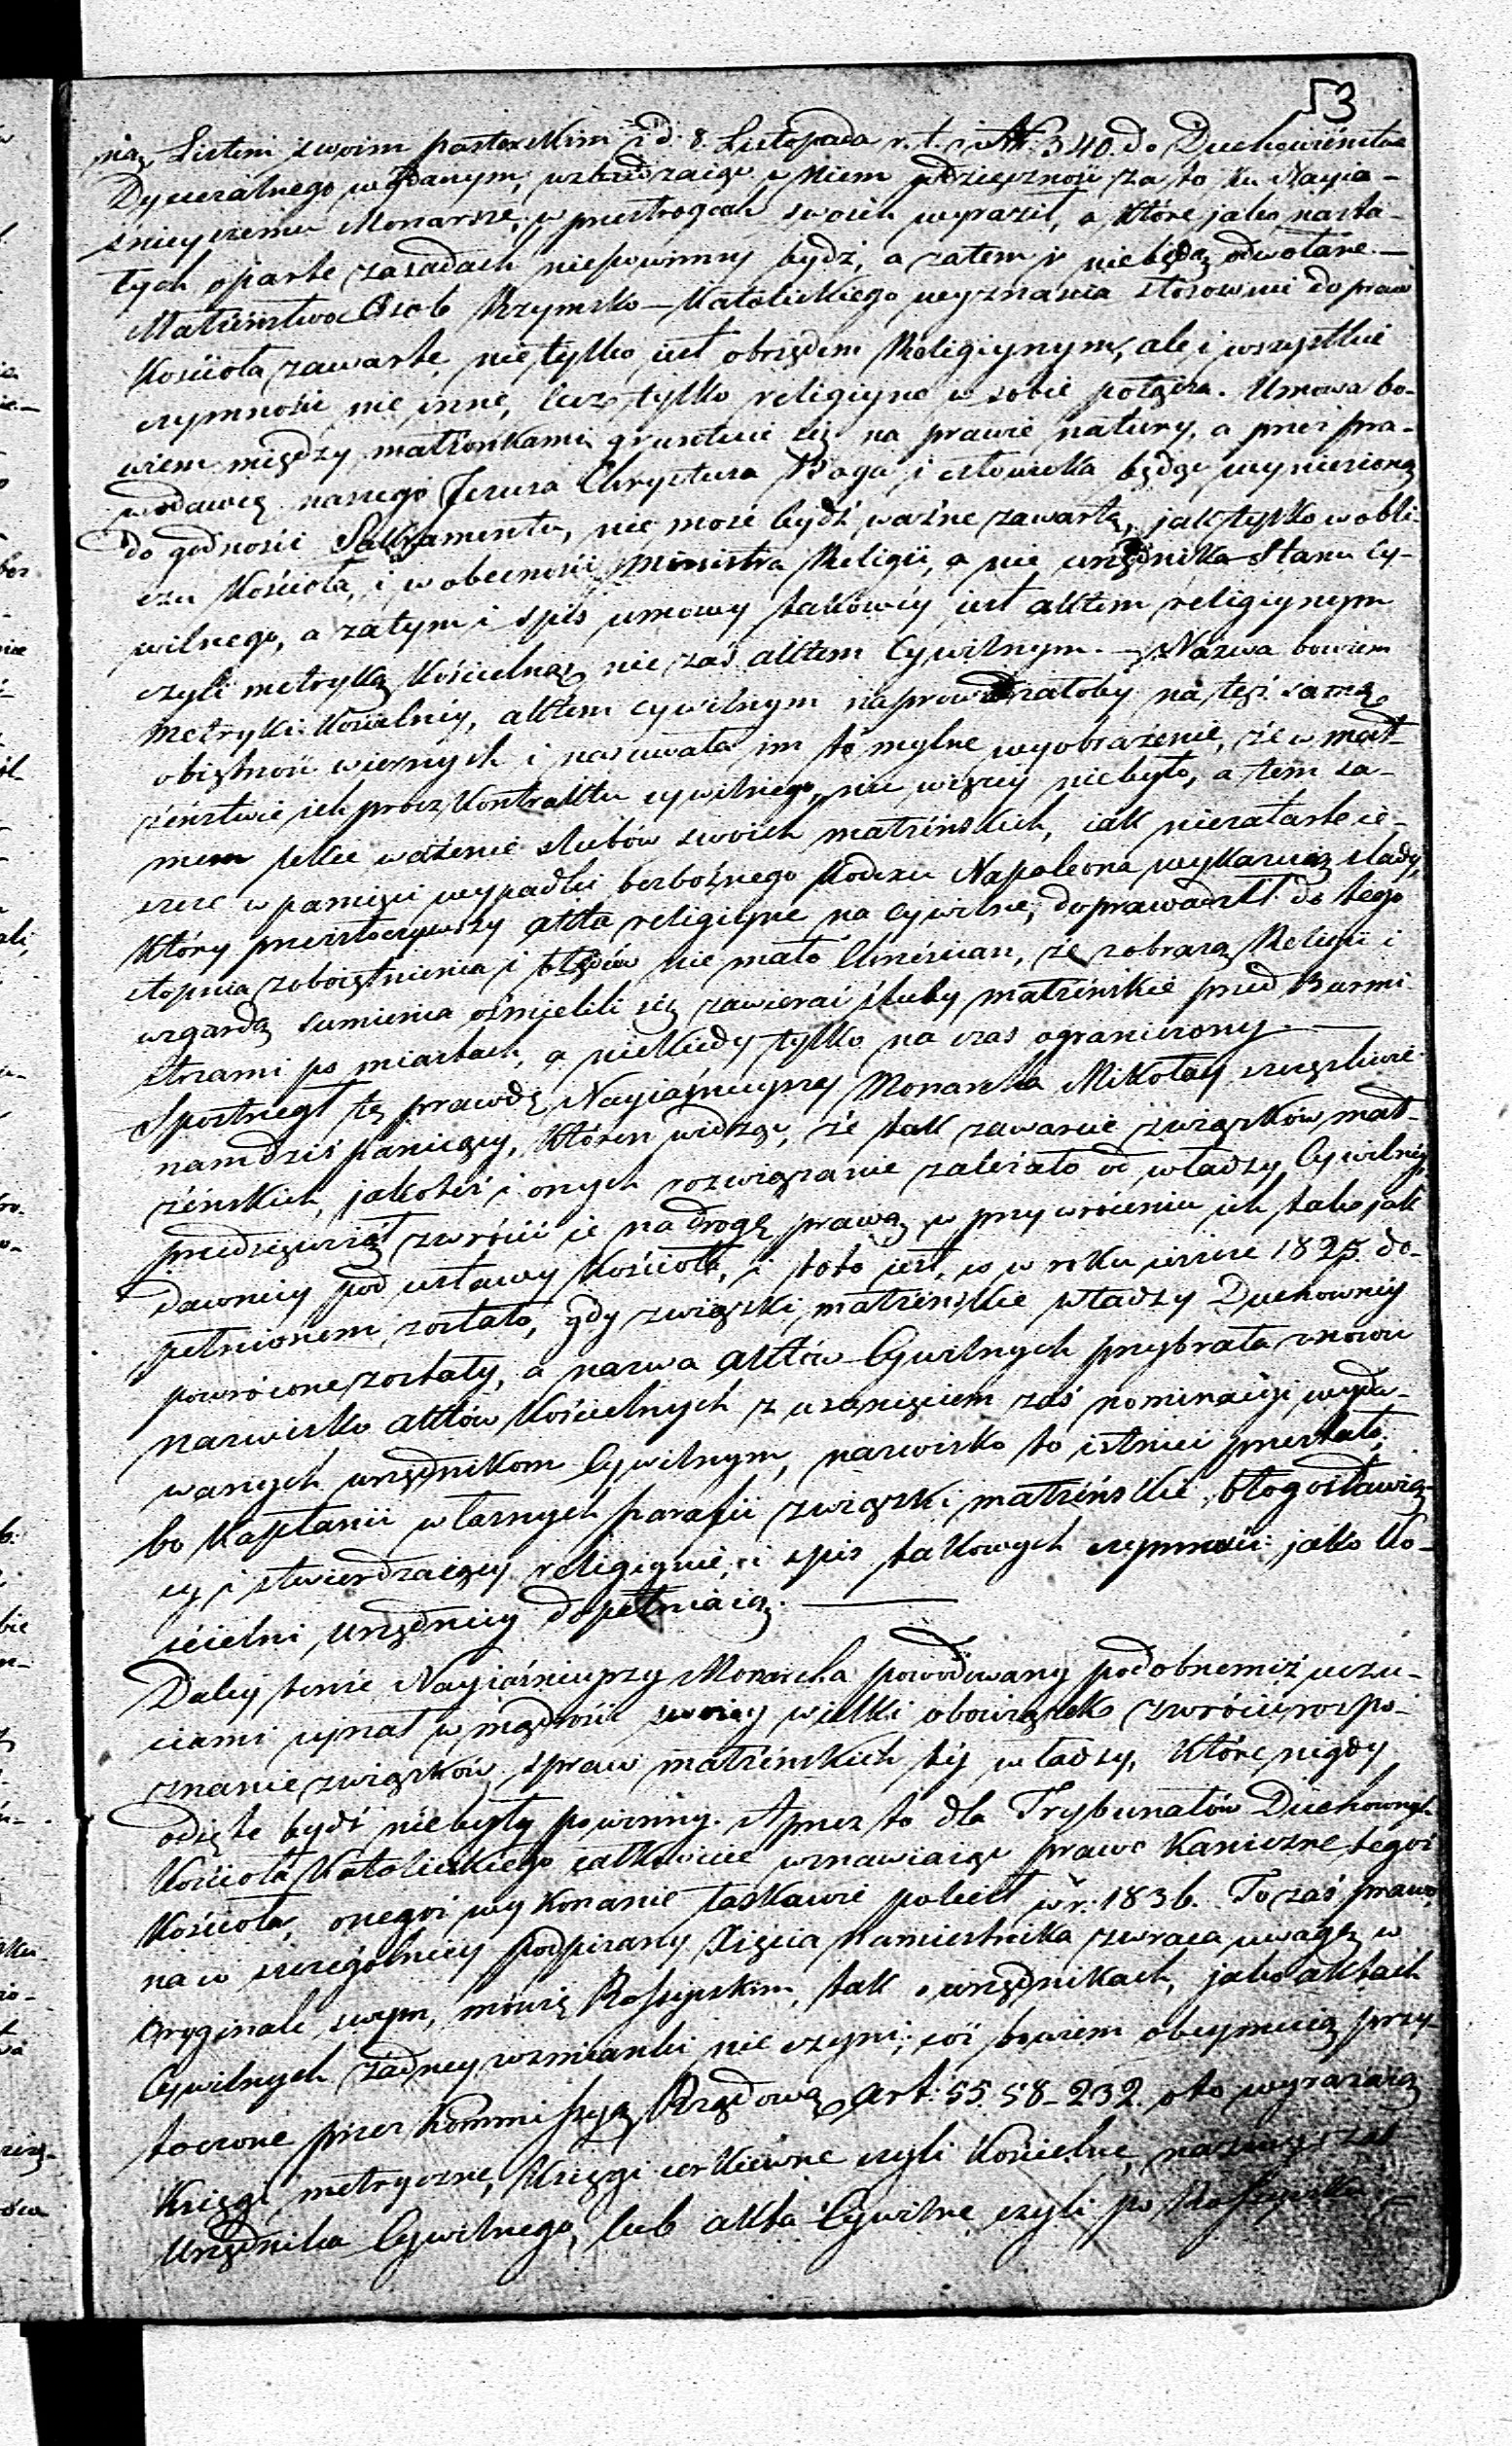 53
nią Listem swoim pasterskim z d. 8. Listopada r. t. i Nr. 340. do Duchowieństwa
Dyecezalnego wydanym, wzbudzaiąc w Niem wdzięczność za to ku Nayia-
śnieyszemu Monarsze, w przestrogach swoich wyraził, a które jako na sta-
łych oparte zasadach niepowinny bydź, a zatem i niebędą odwołane.—
Małżeństwo Osob Rzymsko-Katolickiego wyznania stosownie do praw
Kościoła zawarte, nietylko iest obrzędem Religiynym, ale i wszystkie
czynności nie inne, lecz tylko religiyne w sobie połącza. Umowa bo-
wiem między małżonkami gruntuie się na prawie natury, a przez pra-
wodawcę naszego Jezusa Chrystusa Boga i człowieka będąc wyniesioną
do godności Sakramentu, nie może bydź ważne zawartą, jak tylko w obli-
czu Kościoła, i w obecności Ministra Religii, a nie urzędnika Stanu Cy-
wilnego, a zatym i spis umowy takowéy iest aktem religiynym
czyli metryką Kościelną, nie zaś aktem Cywilnym.— Nazwa bowiem
Metryki Kościelnéy, aktem cywilnym naprowadzałoby na tęż samą
obiętność wiernych i nasuwała im to mylne wyobrażenie, że w mał-
żeństwie ich prócz Kontraktu cywilnego, nic więcey niebyło, a tem sa-
mem lekce ważenie slubów swoich małżeńskich, iak niezatarte ie-
szcze w pamięci wypadki bezbożnego Kodexu Napoleona wykazuią slady,
Który przeistoczywszy akta religiyne na cywilne, doprawadził do tego
stopnia zoboiętnienia i błędów nie mało Chrześcian, że z obrazą Religii i
wzgardą sumienia ośmielili się zawierać śluby małżeńskie przed Burmi-
strzami po miastach, a niekiedy tylko na czas ograniczony.—
Spostrzegł tę prawdę Nayiaśnieyszy Monarcha Mikołay szczęśliwie
nam dziś panuiący, Któren widząc, że tak zawarcie związków mał-
żeńskich, jakoteż i onych rozwiązanie zależało od władzy Cywilnéy,
przedsięwziął zwrócić ie na drogę prawą w przywróceniu ich tako jak
dawniey pod ustawy Kościoła, i toto iest, co w roku iescze 1825. do-
pełnionem zostało, gdy związki małżeńskie władzy Duchownéy
powrócone zostały, a nazwa aktów Cywilnych przybrała znowu
nazwisko aktów Kościelnych z usunięciem zaś nominacyi wyda-
wanych urzędnikom Cywilnym, nazwisko to istnieć przestało,
bo Kapłanii własnych parafii związki małżeńskie błogosławią-
cy i stwierdzaiący religiynie, i spis takowych czynności jako Ko-
ścielni urzędnicy dopełniaią.—
Daley tenże Nayiaśnieyszy Monarcha powodowany podobnemiż uczu-
ciami uznał w mądrości swoiey wielki obowiązek zwrócić rozpo-
znanie związków, spraw małżeńskich téy władzy, Któré nigdy
odięte bydź niebyły powinny. A przez to dla Trybunałów Duchownych
Kościoła Katolickiego całkowicie wznawiaiąc prawo Kaniczne tegoż
Kościoła, onegoż wykonanie łaskawie polecił w r. 1836. To zaś prawo,
na w szczególniey podpisany Xięcia Namiestnika zwraca uwagę, w
Oryginale swym, mówię Rossyiskim, tak o urzędnikach, jako aktach
Cywilnych żadney wzmianki nie czyni; cóż bowiem obeymuią przy-
toczone przez Kommissyą Rządową Art. 55. 58-232. oto wyrażaią
Księgi metryczne, Księgi cerkiewne czyli Kościelne, nazwy zaś
Urzędnika Cywilnego, lub akta Cywilne czyli po Rossyisku